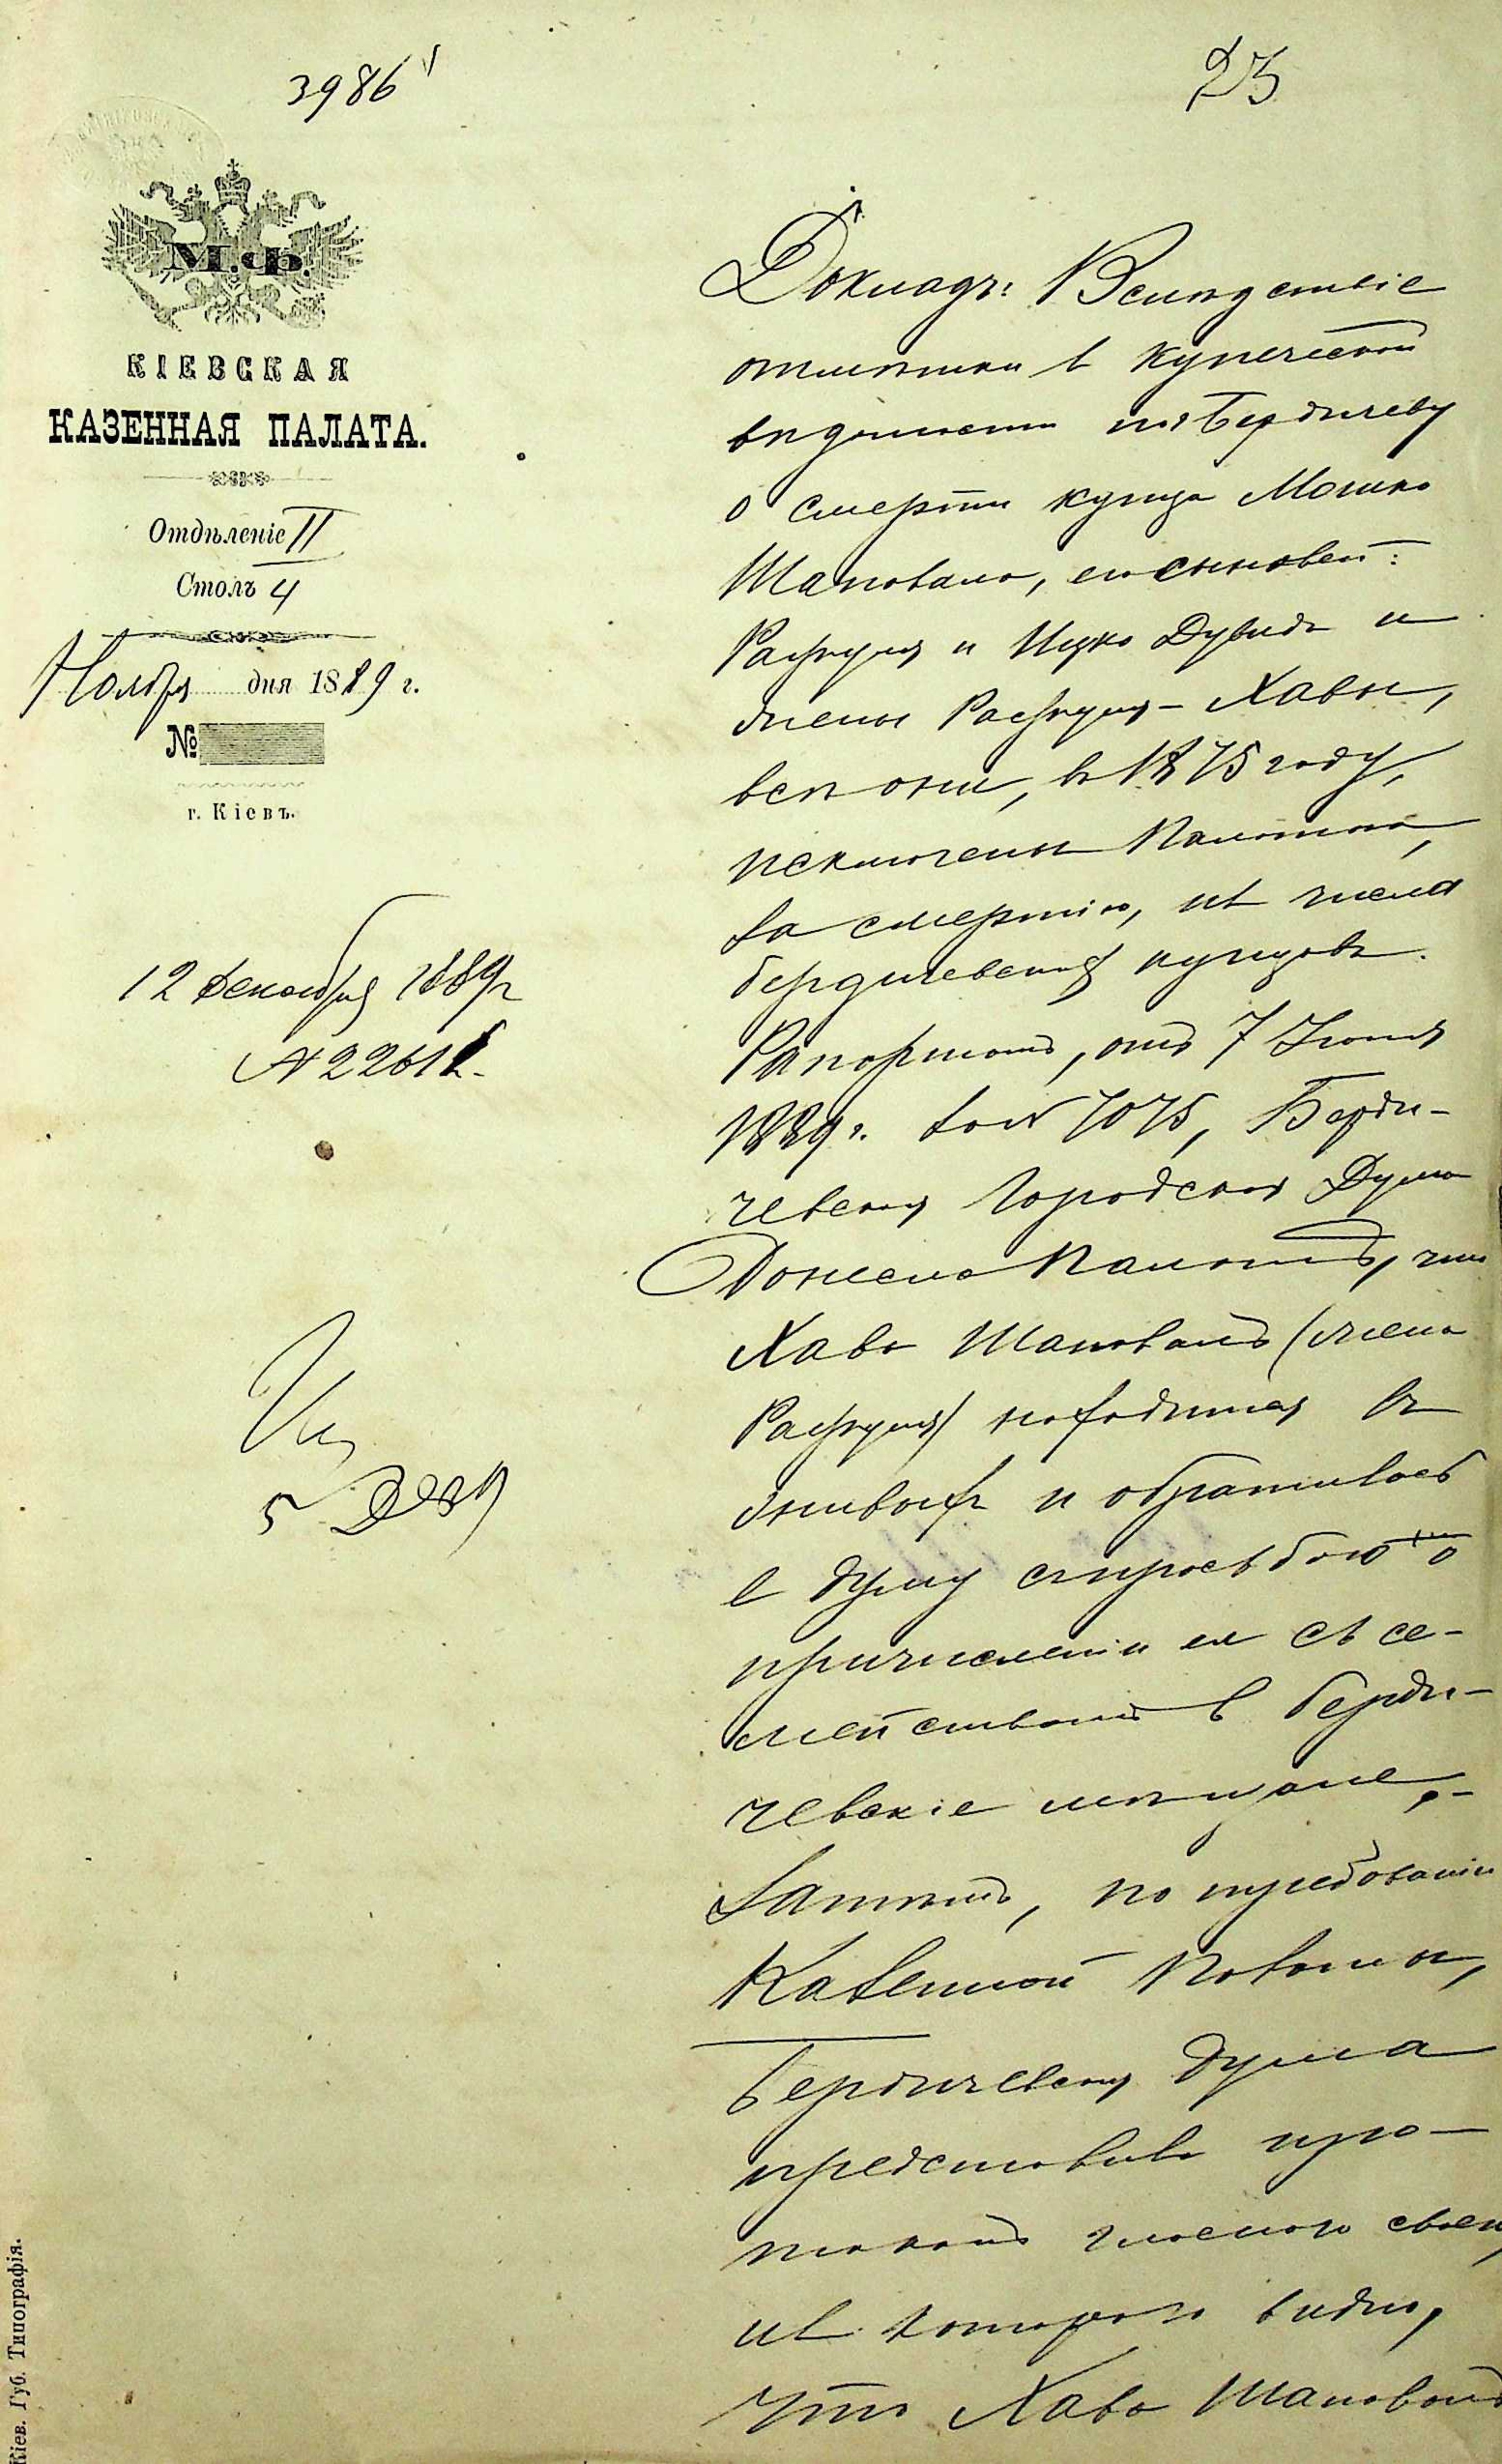 3986
23
М.Ф.
КІЕВСКАЯ
КАЗЕННАЯ ПАЛАТА.
Отдѣленіе II
Столъ 4
Ноября дня 1889 г.
№
г. Кіевъ.
12 декабря 1889 г
№ 22612.
5 Д 89
Кіев. Губ. Типографія.
Докладъ: Вслѣдствіе
отмѣтки в купеческой
вѣдомости по г Бердичеву
о смерти купца Мошко
Шаповала, его сыновей:
Рахмуля и Ицко Дувидъ и
жены Рахмуля - Хавы,
всѣ они, въ 1875 году,
исключены Палатою,
за смертію, изъ числа
бердичевских купцовъ.
Рапортомъ, отъ 7 Іюня
1889 г. за № 7075, Берди-
чевская Городская Дума
донесла Палатѣ, что
Хава Шаповалъ (жена
Рахмуля) находится въ
живыхъ и обратилась
в думу съ просьбою о
причисленіи ея съ се-
мействомъ в берди-
чевскіе мѣщане,-
Затѣмъ, по требованію
Казенной Палаты,
Бердичевская дума
представила про-
токолъ гласного своего,
из которого видно,
что Хава Шаповалъ